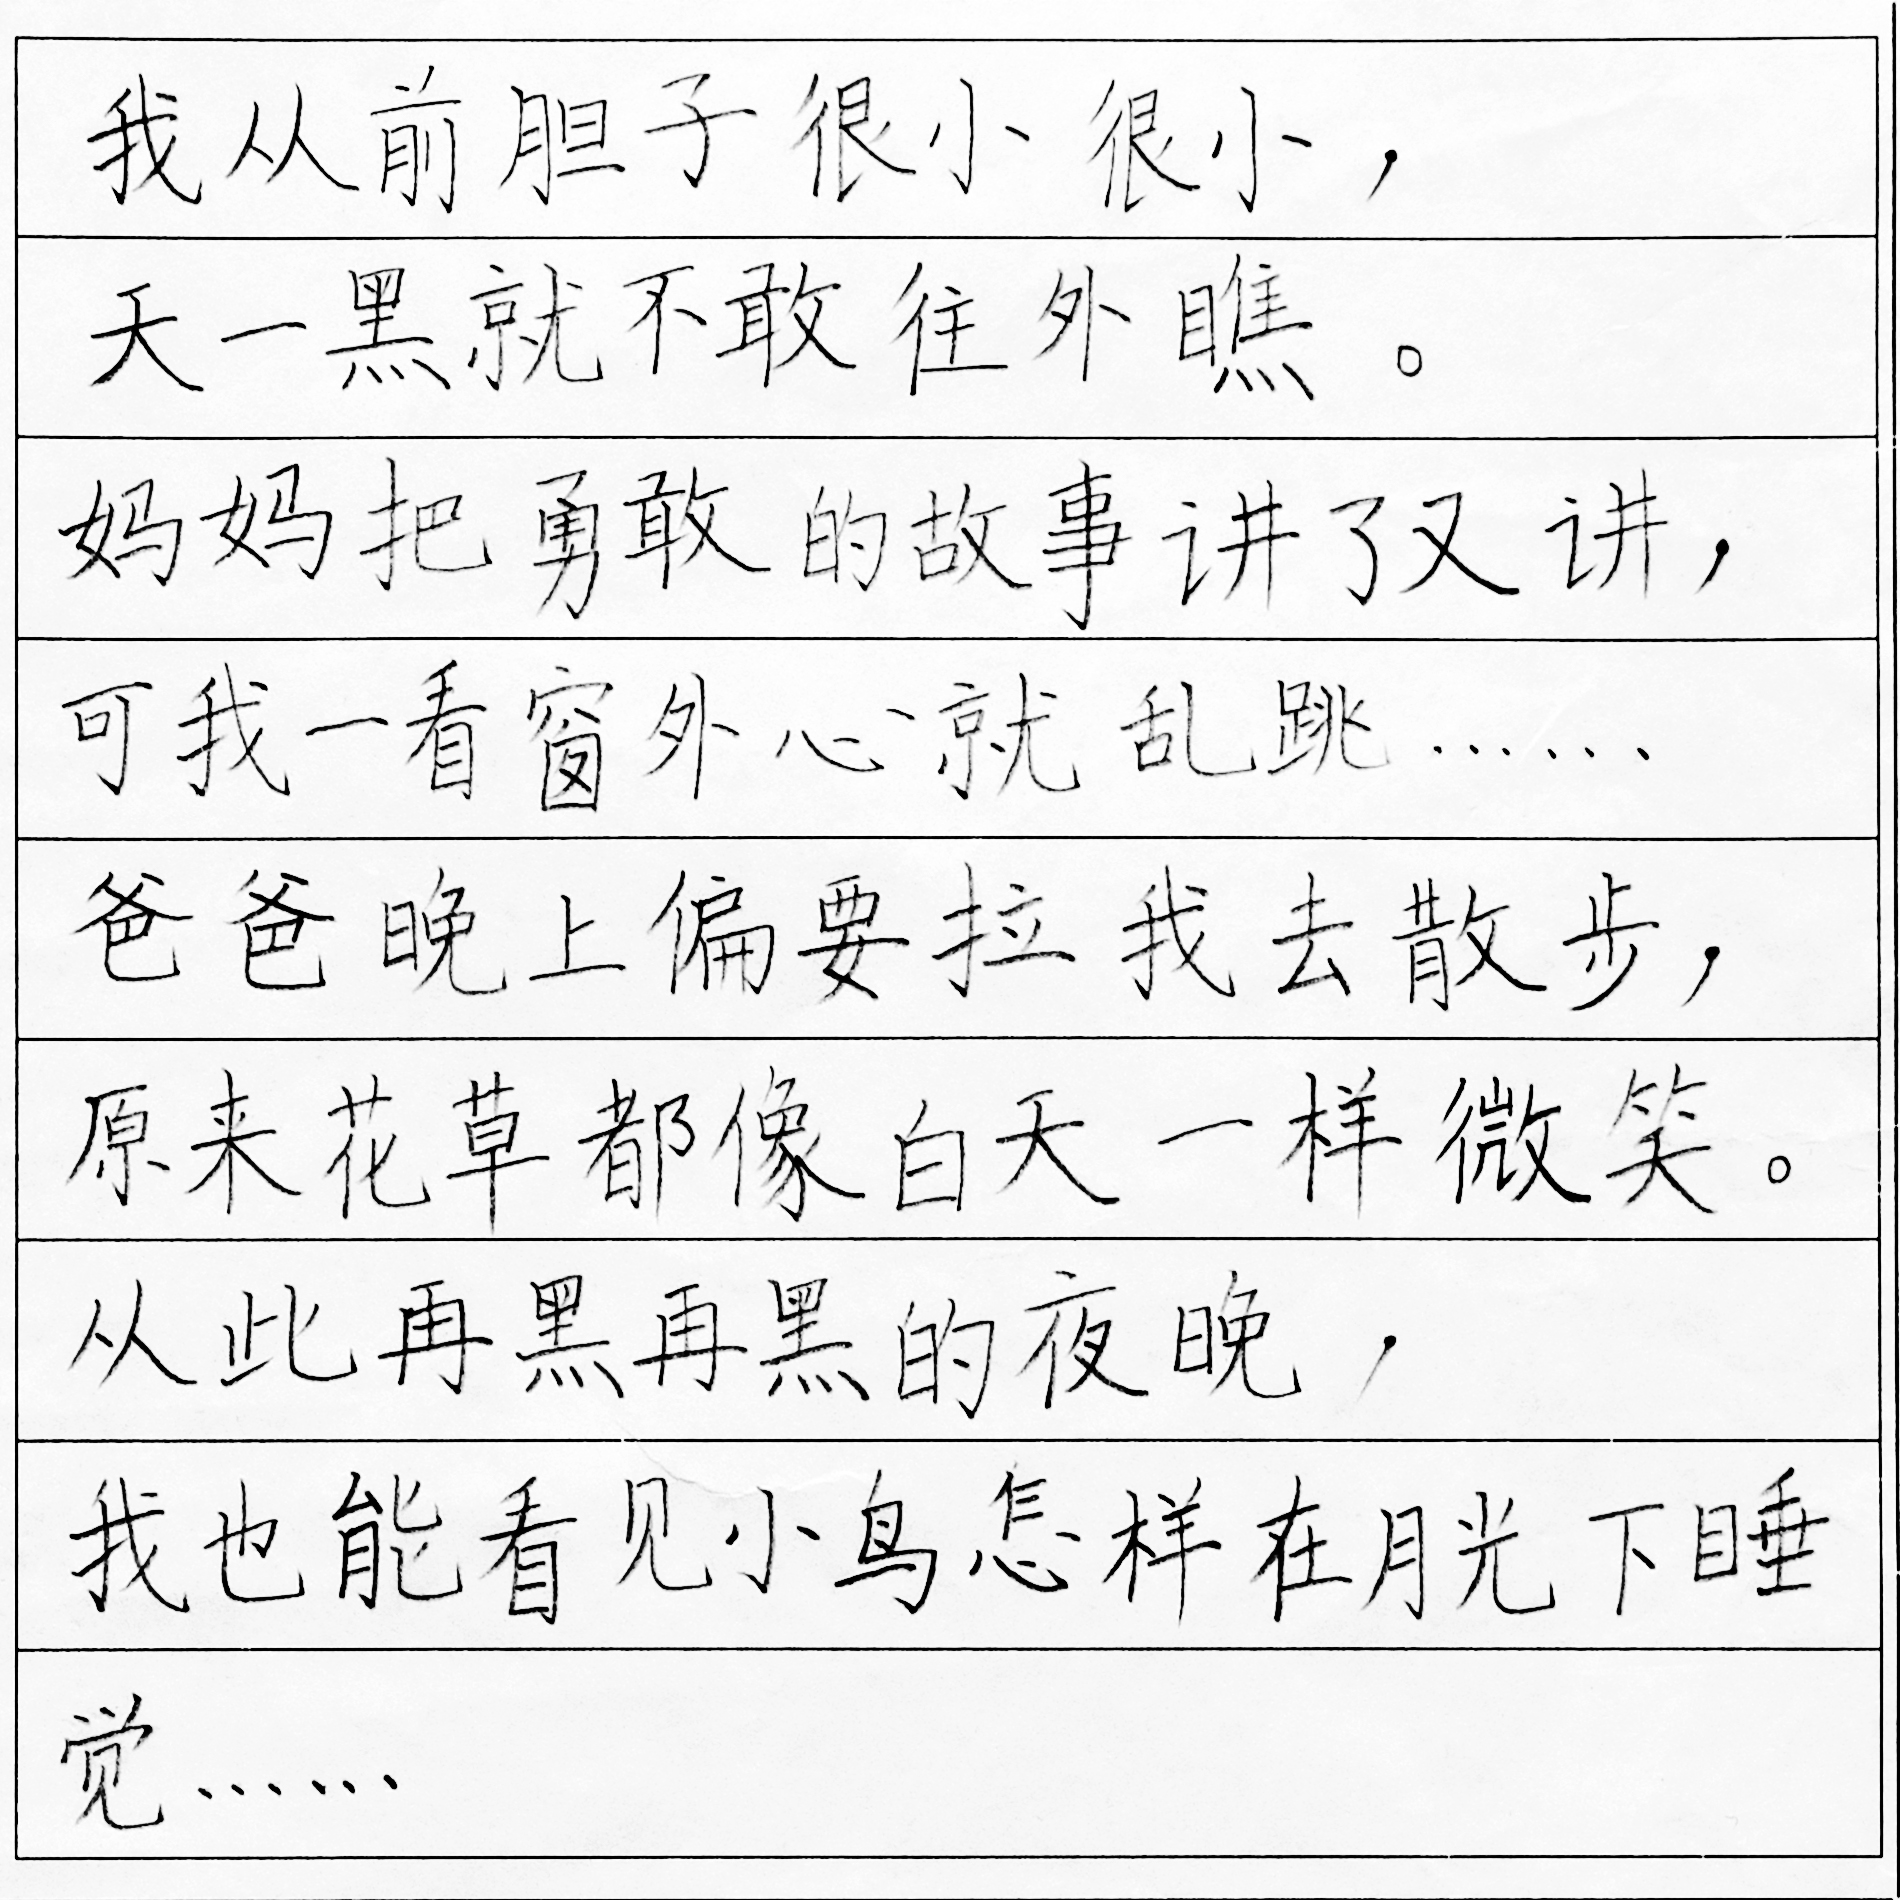 我从前胆子很小很小，
天一黑就不敢往外瞧。
妈妈把勇敢的故事讲了又讲，
可我一看窗外心就乱跳……
爸爸晚上偏要拉我去散步，
原来花草都像白天一样微笑。
从此再黑再黑的夜晚，
我也能看见小鸟怎样在月光下睡
觉……